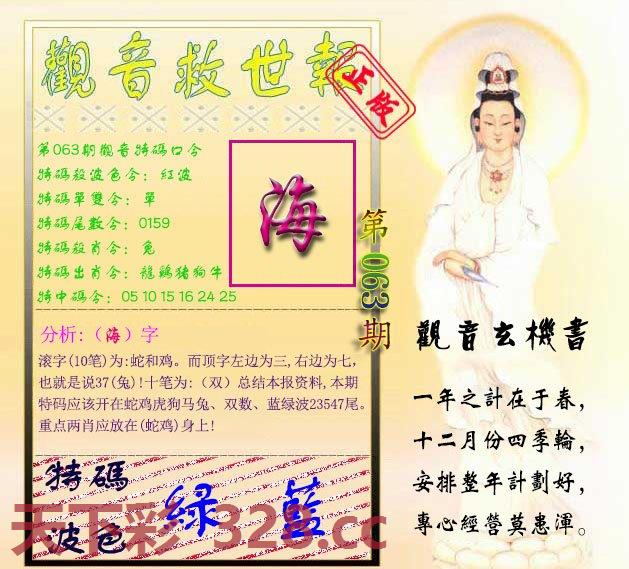 觀音救世報
正版
第063期觀音特碼口令
特碼殺波色令：紅波
特碼單雙令：單
特碼尾數令：0159
特碼殺肖令：兔
特碼出肖令：龍鷄猪狗牛
特中碼令：05 10 15 16 24 25
海
第063期
分析:（海）字
滚字(10笔)为:蛇和鸡。而顶字左边为三,右边为七,
也就是说37(兔)!十笔为:（双）总结本报资料,本期
特码应该开在蛇鸡虎狗马兔、双数、蓝绿波23547尾。
重点两肖应放在(蛇鸡)身上!
特碼
波色
綠 藍
天下彩 328.cc
觀音玄機書
一年之計在于春，
十二月份四季輪，
安排整年計劃好，
專心經營莫患渾。